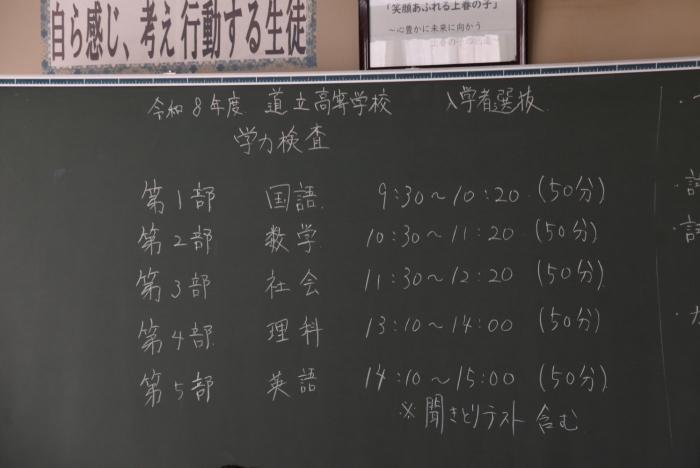 自ら感じ、考え行動する生徒
「笑顔あふれる上春の子」
～心豊かに未来に向かう
令和8年度 道立高等学校 入学者選抜
学力検査
第1部 国語 9:30～10:20 (50分)
第2部 数学 10:30～11:20 (50分)
第3部 社会 11:30～12:20 (50分)
第4部 理科 13:10～14:00 (50分)
第5部 英語 14:10～15:00 (50分)
※聞きとりテスト含む